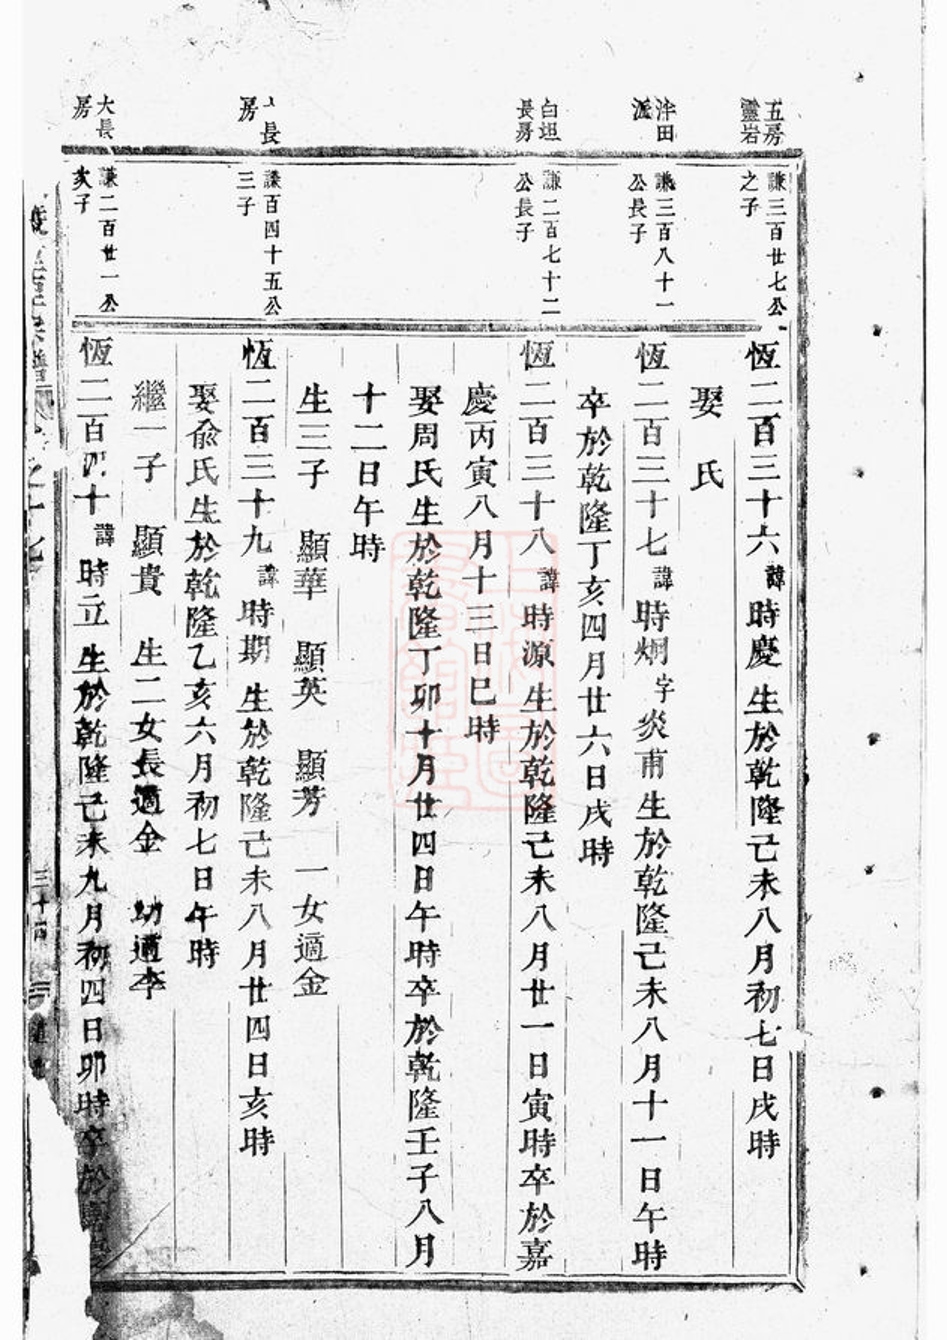 五房
靈岩
謙三百廿七公
之子
恆二百三十六諱時慶生於乾隆己未八月初七日戌時
娶 氏
泮田
派
謙三百八十一
公長子
恆二百三十七諱時炯字炎甫生於乾隆己未八月十一日午時
卒於乾隆丁亥四月廿六日戌時
白坦
長房
謙二百七十二
公長子
恆二百三十八諱時源生於乾隆己未八月廿一日寅時卒於嘉
慶丙寅八月十三日巳時
娶周氏生於乾隆丁卯十月廿四日午時卒於乾隆壬子八月
十二日午時
生三子 顯華 顯英 顯芳 一女適金
長
房
謙百四十五公
三子
恆二百三十九諱時期生於乾隆己未八月廿四日亥時
娶俞氏生於乾隆乙亥六月初七日午時
繼一子 顯貴 生二女長適金 幼適李
大長
房
謙二百廿一公
次子
恆二百四十諱時立生於乾隆己未九月初四日卯時卒於